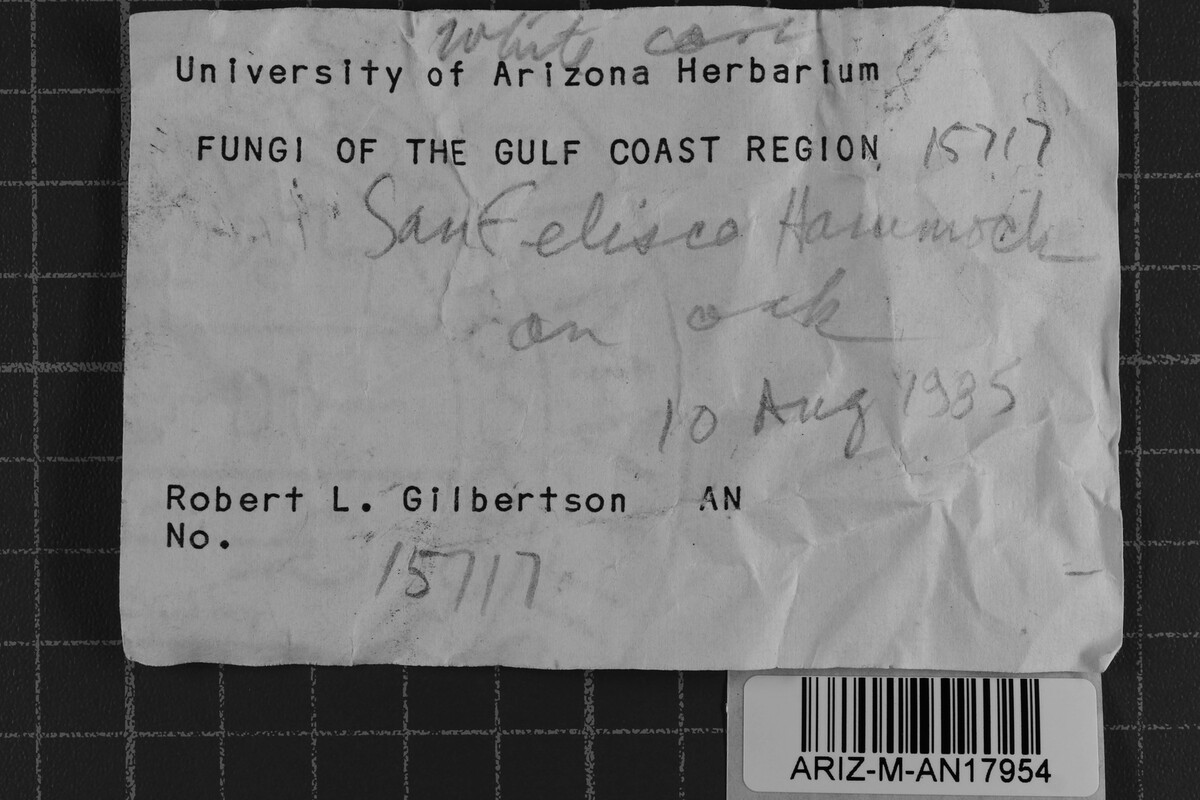 white
University of Arizona Herbarium
FUNGI OF THE GULF COAST REGION 15717
San Felisco Hammock
on oak
10 Aug 1985
Robert L. Gilbertson AN
No.
15717
ARIZ-M-AN17954